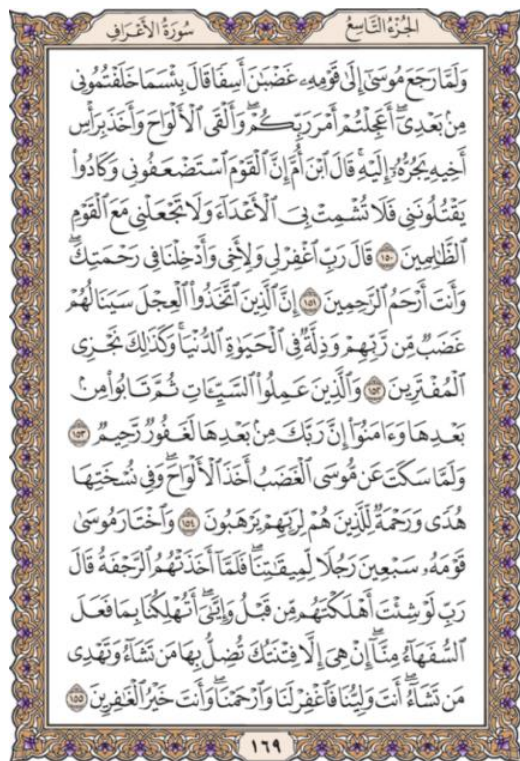 الجُزْءُ التَّاسِعُ
سُورَةُ الأَعْرَافِ
وَلَمَّا رَجَعَ مُوسَىٰٓ إِلَىٰ قَوْمِهِۦ غَضْبَٰنَ أَسِفًا قَالَ بِئْسَمَا خَلَفْتُمُونِى
مِنۢ بَعْدِىٓ ۖ أَعَجِلْتُمْ أَمْرَ رَبِّكُمْ ۖ وَأَلْقَى ٱلْأَلْوَاحَ وَأَخَذَ بِرَأْسِ
أَخِيهِ يَجُرُّهُۥٓ إِلَيْهِ ۚ قَالَ ٱبْنَ أُمَّ إِنَّ ٱلْقَوْمَ ٱسْتَضْعَفُونِى وَكَادُوا۟
يَقْتُلُونَنِى فَلَا تُشْمِتْ بِىَ ٱلْأَعْدَآءَ وَلَا تَجْعَلْنِى مَعَ ٱلْقَوْمِ
ٱلظَّٰلِمِينَ ١٥٠ قَالَ رَبِّ ٱغْفِرْ لِى وَلِأَخِى وَأَدْخِلْنَا فِى رَحْمَتِكَ ۖ
وَأَنتَ أَرْحَمُ ٱلرَّٰحِمِينَ ١٥١ إِنَّ ٱلَّذِينَ ٱتَّخَذُوا۟ ٱلْعِجْلَ سَيَنَالُهُمْ
غَضَبٌ مِّن رَّبِّهِمْ وَذِلَّةٌ فِى ٱلْحَيَوٰةِ ٱلدُّنْيَا ۚ وَكَذَٰلِكَ نَجْزِى
ٱلْمُفْتَرِينَ ١٥٢ وَٱلَّذِينَ عَمِلُوا۟ ٱلسَّيِّـَٔاتِ ثُمَّ تَابُوا۟ مِنۢ
بَعْدِهَا وَءَامَنُوٓا۟ إِنَّ رَبَّكَ مِنۢ بَعْدِهَا لَغَفُورٌ رَّحِيمٌ ١٥٣
وَلَمَّا سَكَتَ عَن مُّوسَى ٱلْغَضَبُ أَخَذَ ٱلْأَلْوَاحَ ۖ وَفِى نُسْخَتِهَا
هُدًى وَرَحْمَةٌ لِّلَّذِينَ هُمْ لِرَبِّهِمْ يَرْهَبُونَ ١٥٤ وَٱخْتَارَ مُوسَىٰ
قَوْمَهُۥ سَبْعِينَ رَجُلًا لِّمِيقَٰتِنَا ۖ فَلَمَّآ أَخَذَتْهُمُ ٱلرَّجْفَةُ قَالَ
رَبِّ لَوْ شِئْتَ أَهْلَكْتَهُم مِّن قَبْلُ وَإِيَّٰىَ ۖ أَتُهْلِكُنَا بِمَا فَعَلَ
ٱلسُّفَهَآءُ مِنَّآ ۖ إِنْ هِىَ إِلَّا فِتْنَتُكَ تُضِلُّ بِهَا مَن تَشَآءُ وَتَهْدِى
مَن تَشَآءُ ۖ أَنتَ وَلِيُّنَا فَٱغْفِرْ لَنَا وَٱرْحَمْنَا ۖ وَأَنتَ خَيْرُ ٱلْغَٰفِرِينَ ١٥٥
١٦٩